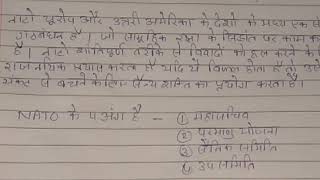 नाटो यूरोप और उत्तरी अमेरिका के देशो के मध्य एक
गठबंधन है। जो सामूहिक रक्षा के सिद्धांत पर काम कर
है। नाटो शांतिपूर्ण तरीके से विवादो को हल करने के
राजनयिक प्रयास करता है यदि ये विफल होता है तो
से बचने के लिए सैन्य शक्ति का प्रयोग करता है।
NATO के 4 अंग है -
① महासचिव
② परमाणु योजना
③ सैनिक समिति
④ उपसमिति